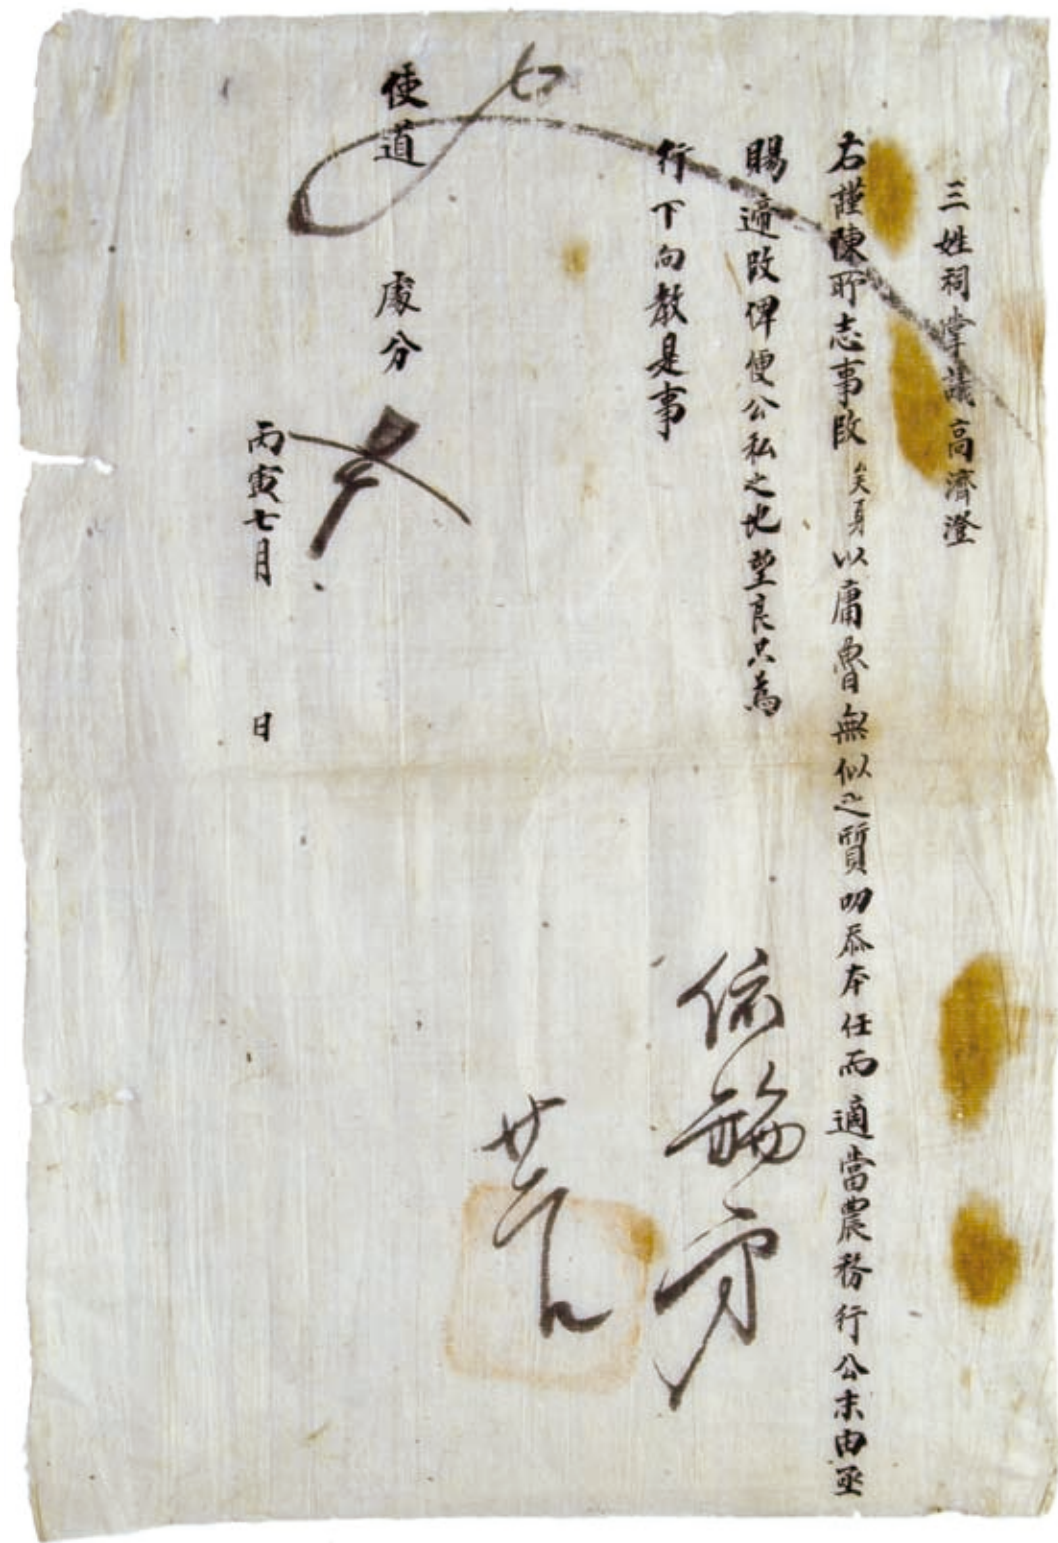 三姓祠掌議高濟澄
右謹陳所志事段矣身以庸魯無似之質叨忝本任而適當農務行公末由亟
賜遆改俾便公私之地望良只爲
行下向敎是事
使道 處分
丙寅七月 日